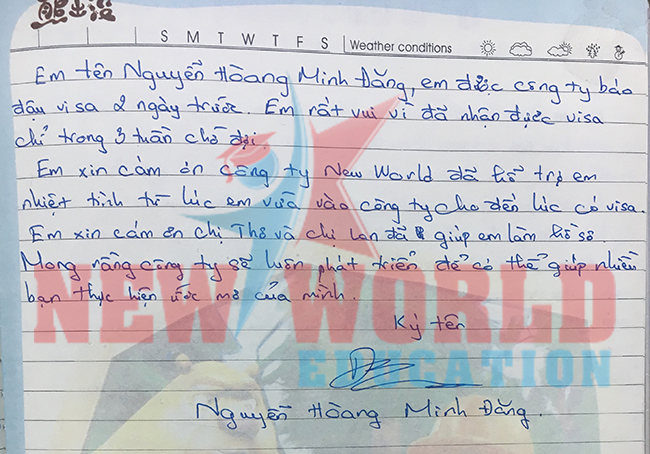 熊出没
S M T W T F S Weather conditions
Em tên Nguyễn Hoàng Minh Đăng, em được công ty báo
đậu visa 2 ngày trước. Em rất vui vì đã nhận được visa
chỉ trong 3 tuần chờ đợi.
Em xin cảm ơn công ty New World đã hỗ trợ em
nhiệt tình từ lúc em vừa vào công ty cho đến lúc có visa.
Em xin cảm ơn chị Thơ và chị Lan đã giúp em làm hồ sơ.
Mong rằng công ty sẽ luôn phát triển để có thể giúp nhiều
bạn thực hiện ước mơ của mình.
NEW WORLD
EDUCATION
Ký tên
Nguyễn Hoàng Minh Đăng.